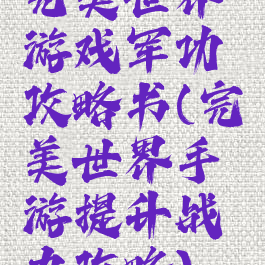 完美世界
游戏军功
攻略书(完
美世界手
游提升战
力攻略)